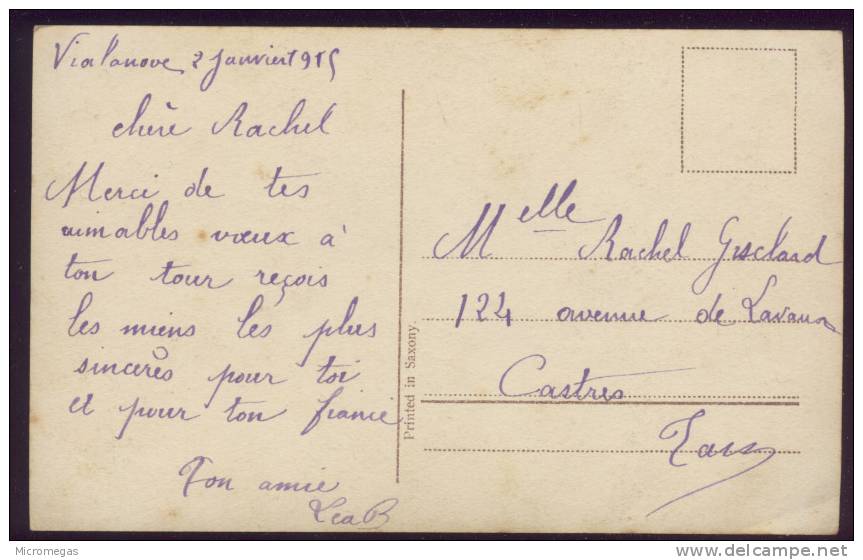 Vialanove 2 Janvier 1915
chère Rachel
Merci de tes
aimables vœux à
ton tour reçois
les miens les plus
sincères pour toi
et pour ton fiancé
Ton amie
Lea B
Printed in Saxony.
Melle Rachel Gisclard
124 avenue de Lavaur
Castres
Tarn
Micromegas
delcampe.net